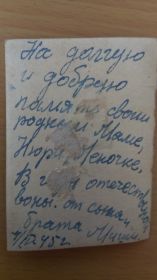 На долгую
и добрую
память своим
родным Маме,
Нюре, Леночке,
В г отечеств
воны. от сына и
брата Миши.
45 г.